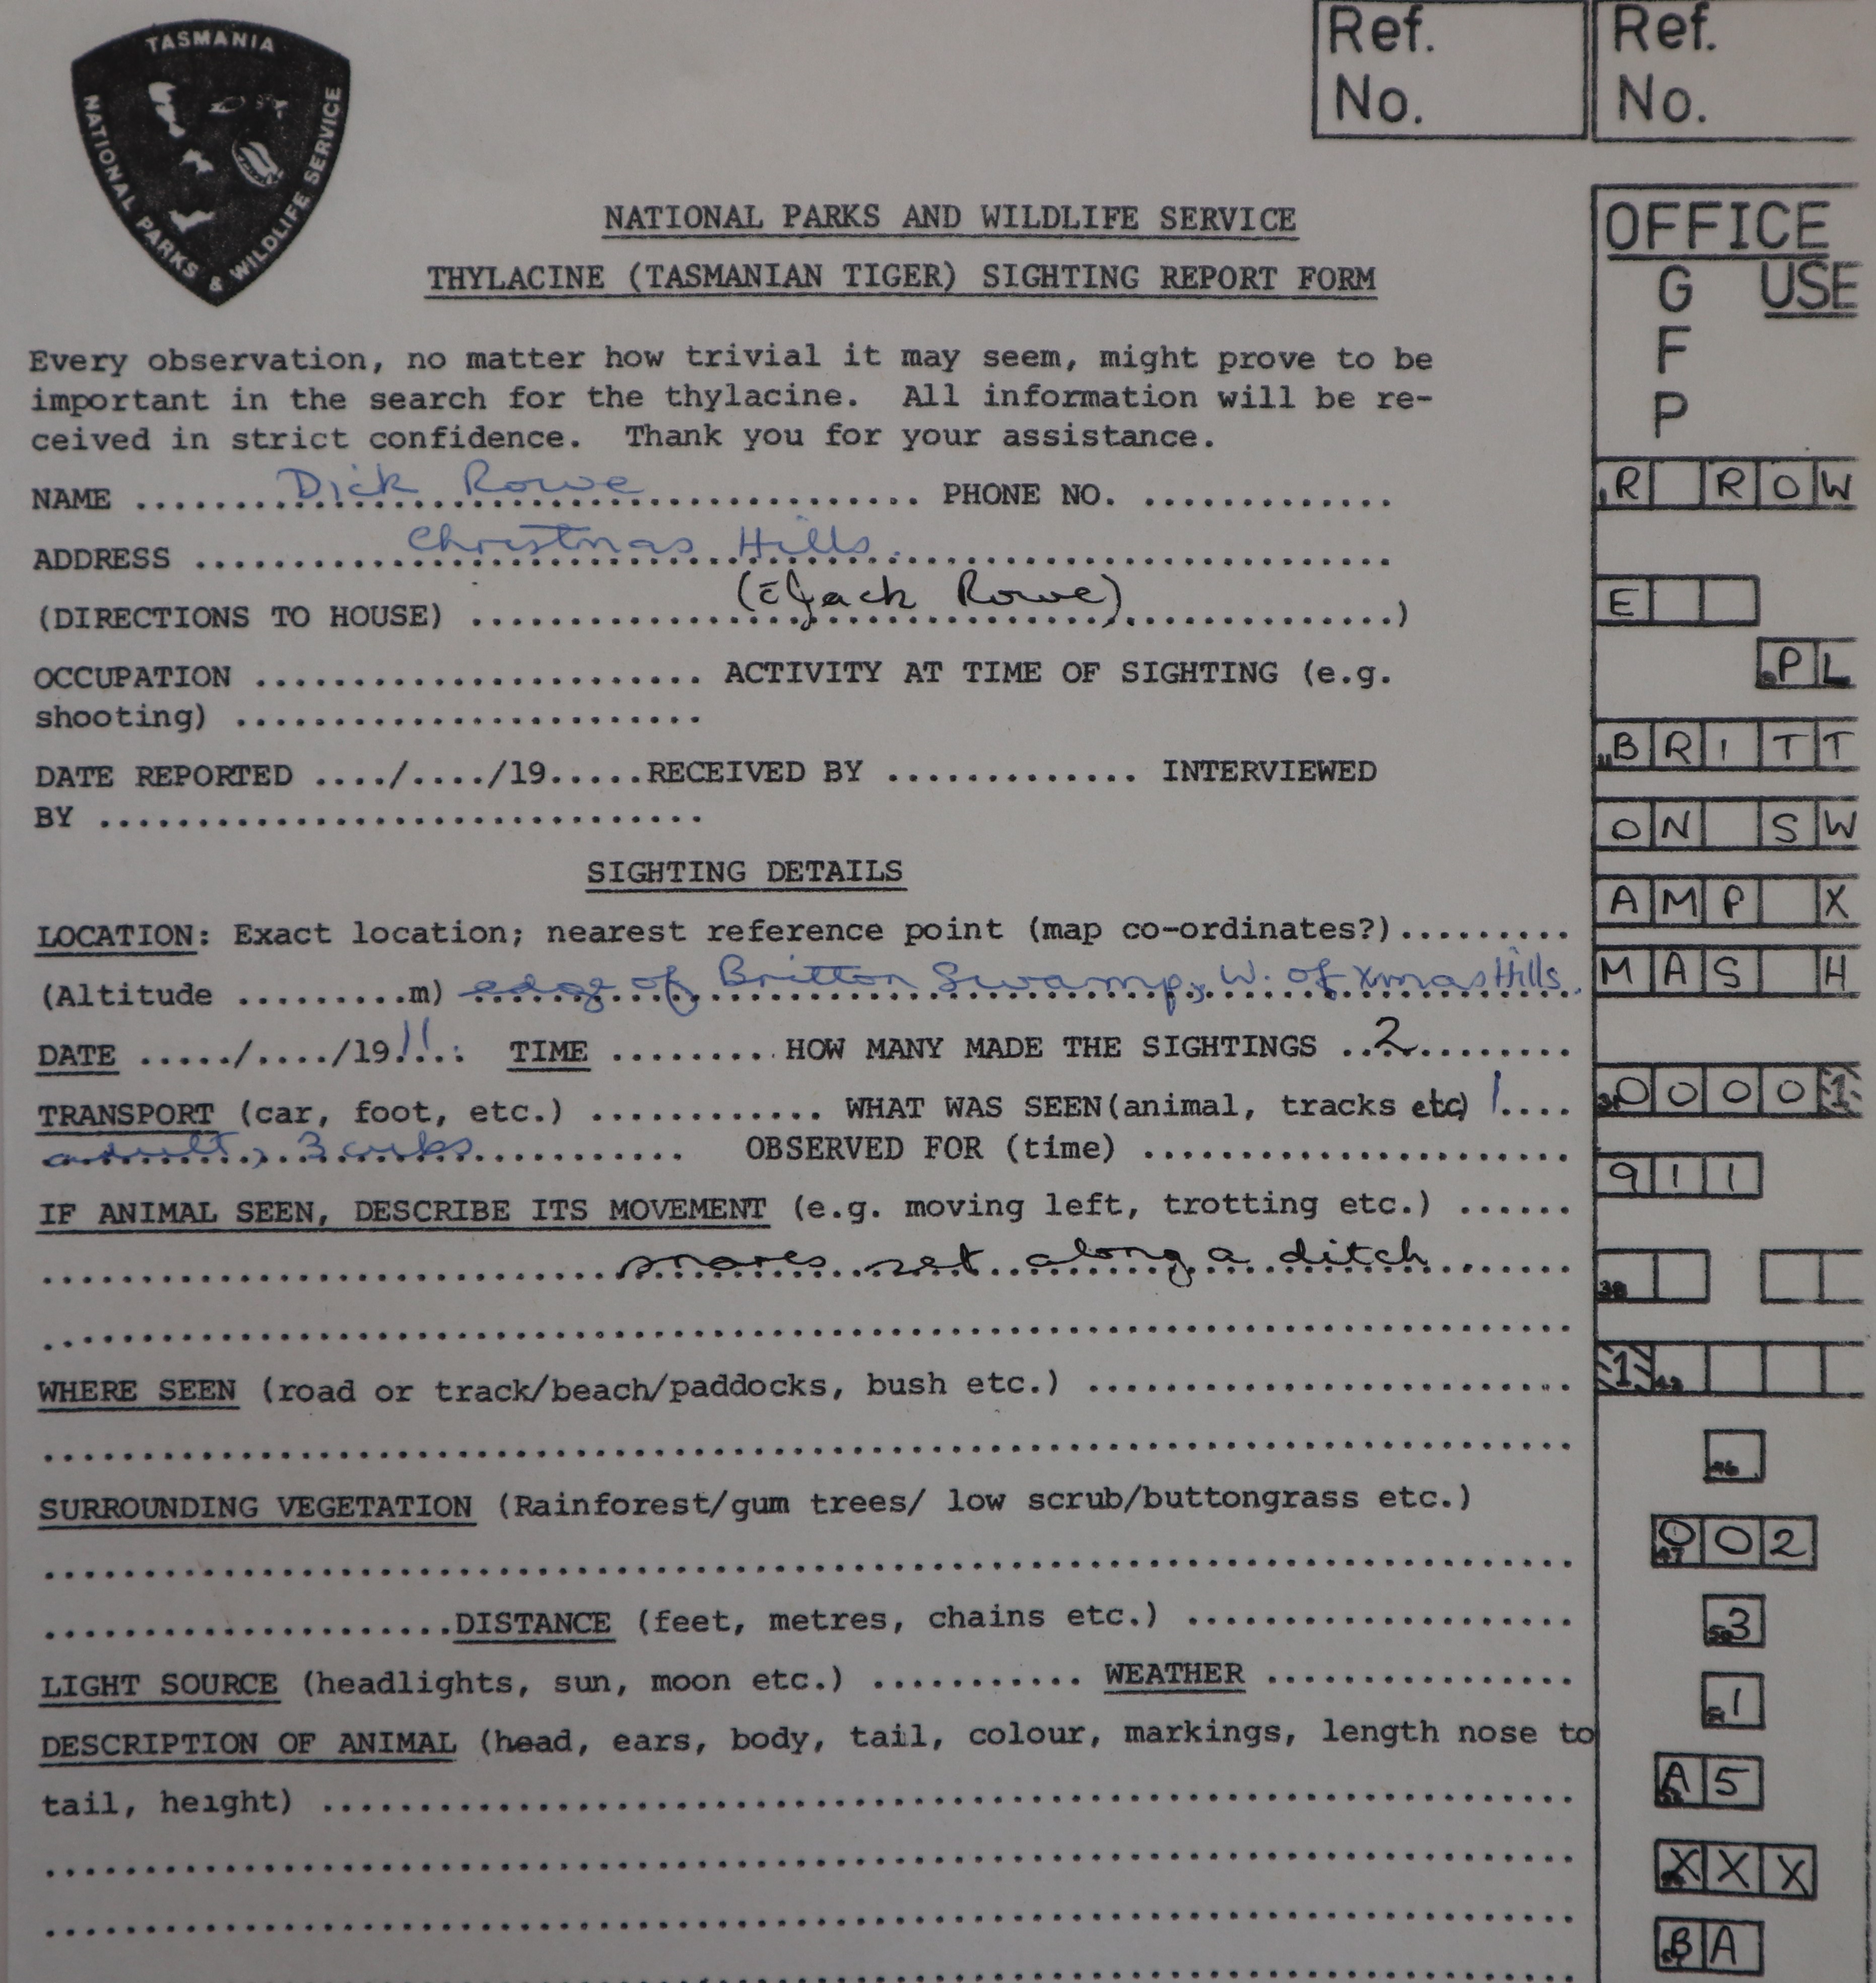 TASMANIA
NATIONAL PARKS & WILDLIFE SERVICE
Ref. No.
Ref. No.
NATIONAL PARKS AND WILDLIFE SERVICE
THYLACINE (TASMANIAN TIGER) SIGHTING REPORT FORM
OFFICE
G USE
F
P
Every observation, no matter how trivial it may seem, might prove to be
important in the search for the thylacine. All information will be re-
ceived in strict confidence. Thank you for your assistance.
NAME ....... Dick Rowe ................ PHONE NO. .............
R ROW
ADDRESS ............ Christmas Hills. ..............................
(DIRECTIONS TO HOUSE) ................ (Jack Rowe) ................)
E
OCCUPATION ....................... ACTIVITY AT TIME OF SIGHTING (e.g.
PL
shooting) ........................
DATE REPORTED ..../..../19.....RECEIVED BY ............. INTERVIEWED
BRITT
BY ...............................
ON SW
SIGHTING DETAILS
AMP X
LOCATION: Exact location; nearest reference point (map co-ordinates?).........
(Altitude .........m) edge of Britton Swamp, W. of Xmas Hills.
MAS H
DATE ...../..../19 11 TIME ......... HOW MANY MADE THE SIGHTINGS ..2.........
TRANSPORT (car, foot, etc.) ............ WHAT WAS SEEN(animal, tracks etc) 1....
00001
adult, 3 cubs ............ OBSERVED FOR (time) ......................
911
IF ANIMAL SEEN, DESCRIBE ITS MOVEMENT (e.g. moving left, trotting etc.) ......
.............................. snares set along a ditch ........
38
...............................................................................
WHERE SEEN (road or track/beach/paddocks, bush etc.) .........................
1
...............................................................................
46
SURROUNDING VEGETATION (Rainforest/gum trees/ low scrub/buttongrass etc.)
002
...............................................................................
.....................DISTANCE (feet, metres, chains etc.) ....................
3
LIGHT SOURCE (headlights, sun, moon etc.) ........... WEATHER ................
1
DESCRIPTION OF ANIMAL (head, ears, body, tail, colour, markings, length nose to
A5
tail, height) ................................................................
...............................................................................
XXX
...............................................................................
BA